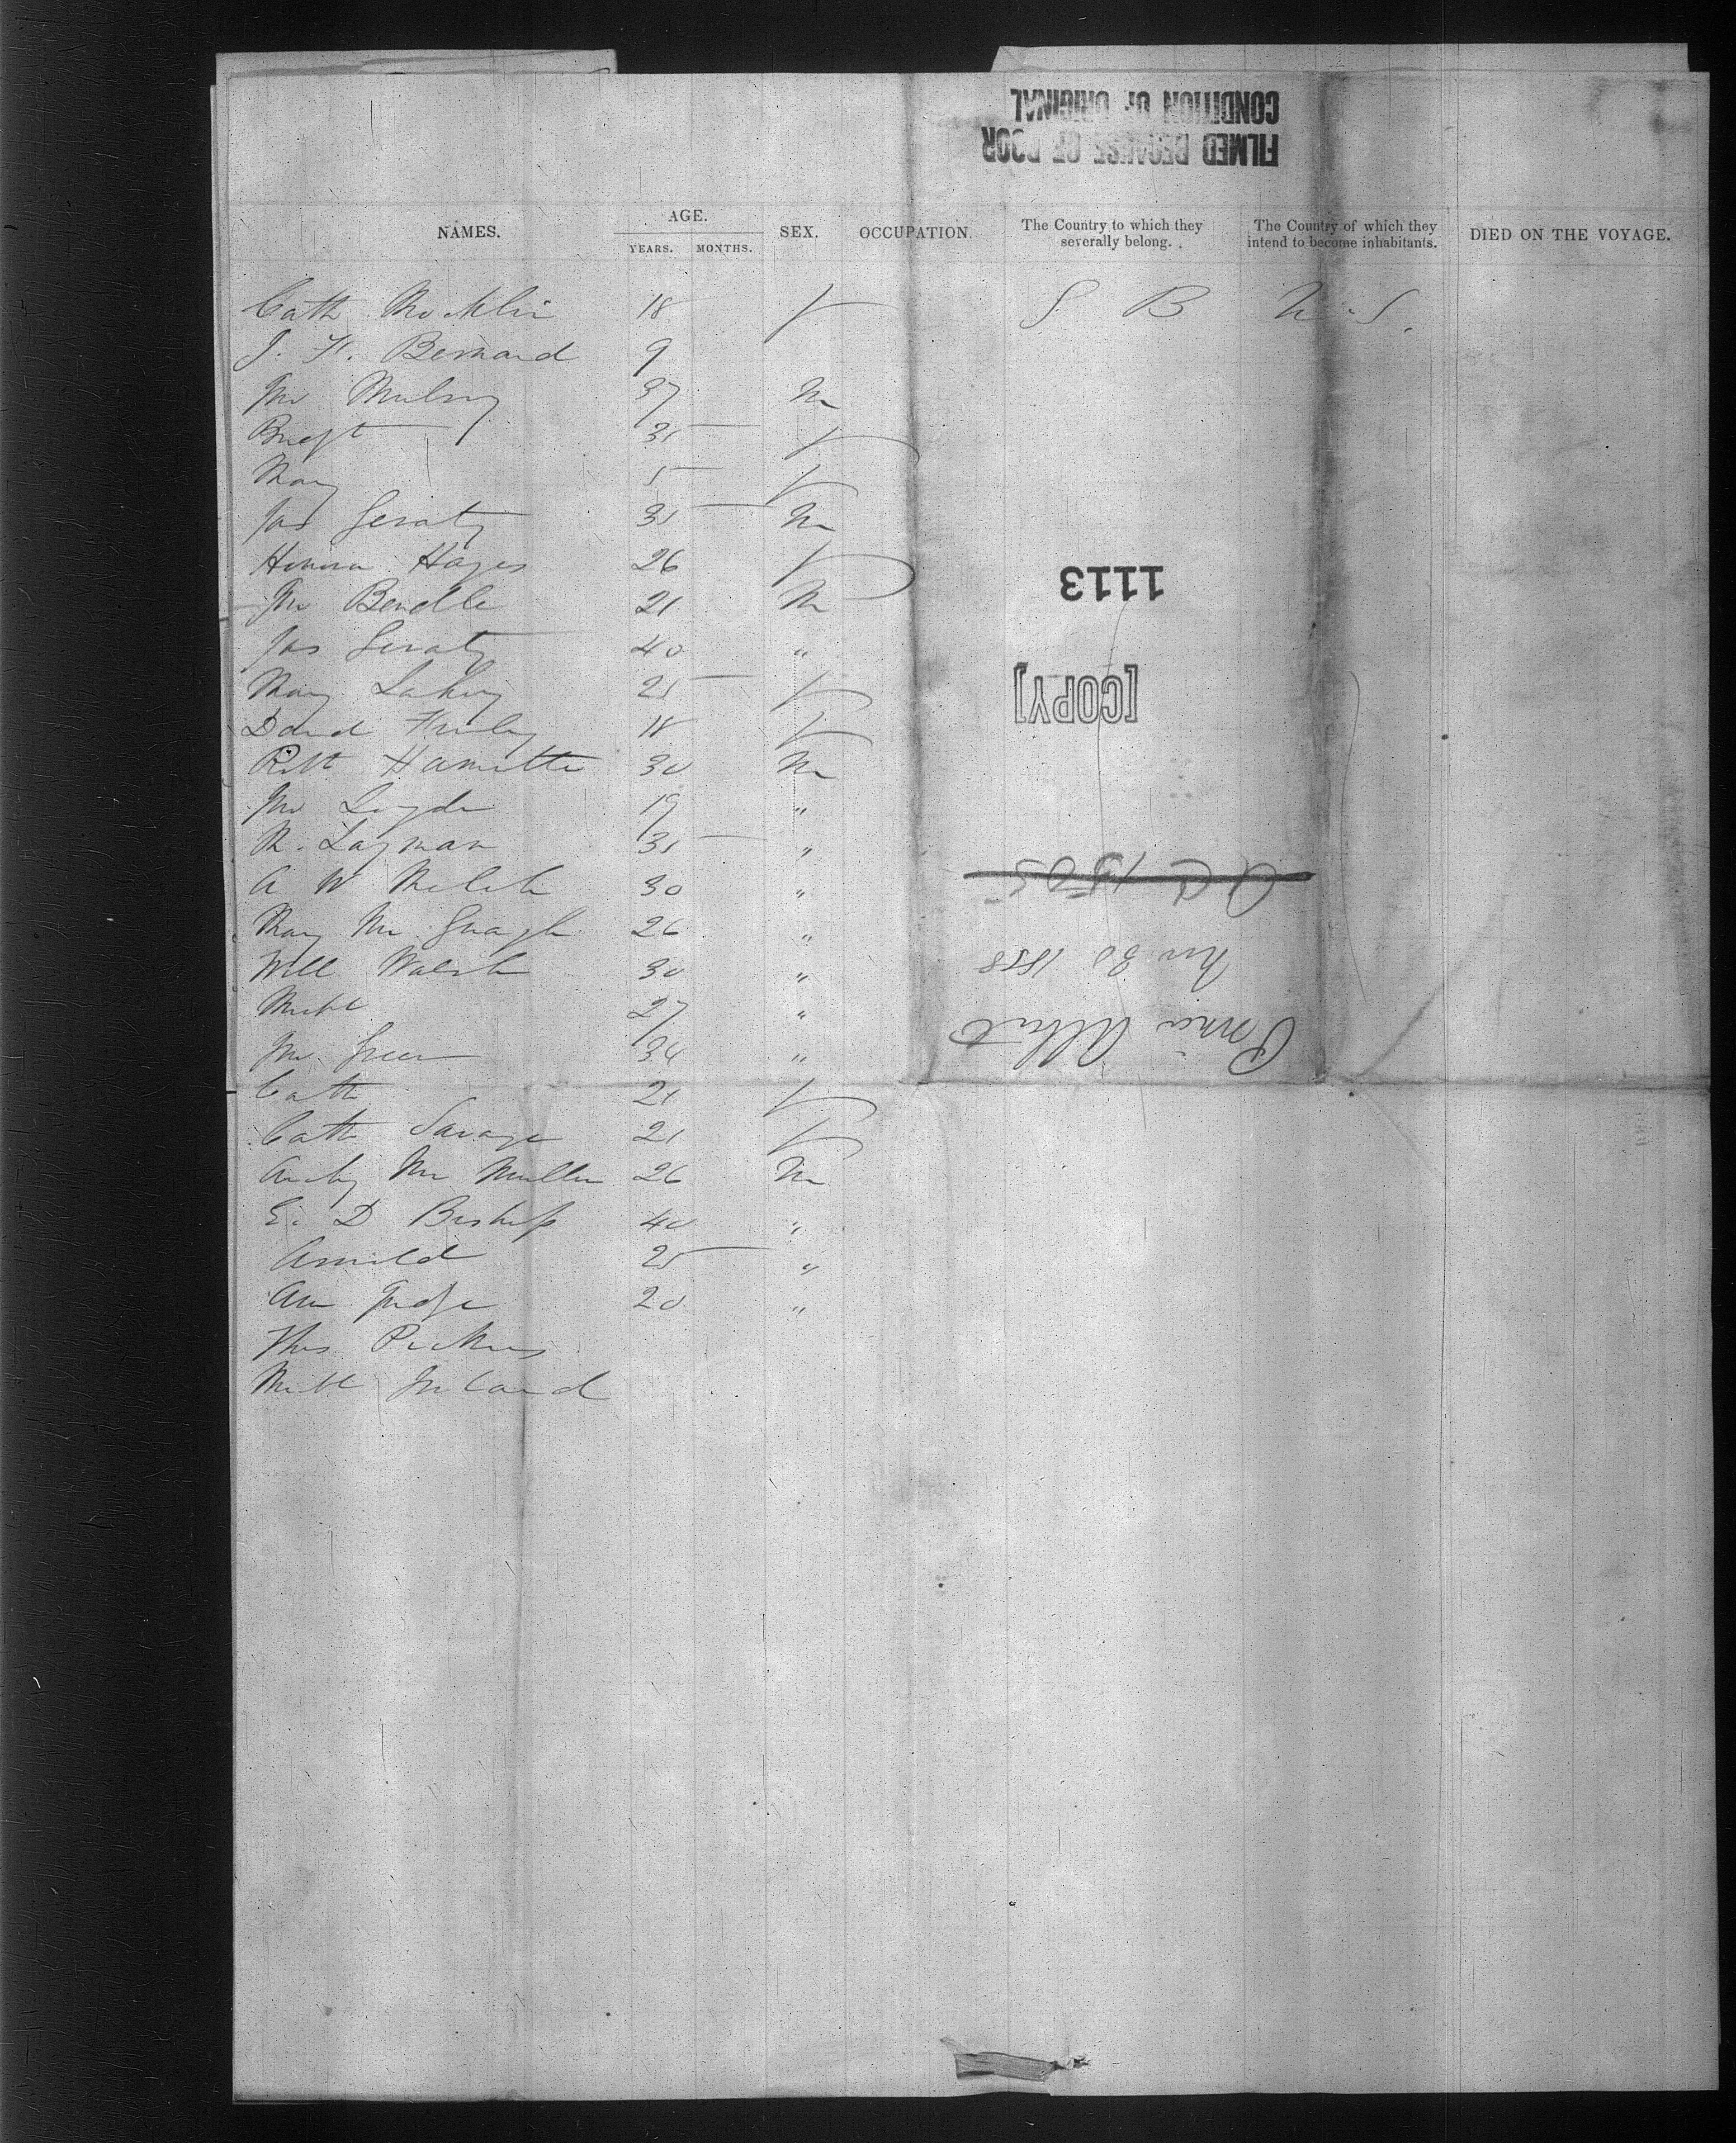 FILMED BECAUSE OF POOR
CONDITION OF ORIGINAL
NAMES. AGE. YEARS. MONTHS. SEX. OCCUPATION. The Country to which they severally belong. The Country of which they intend to become inhabitants. DIED ON THE VOYAGE.
Cath 18 f G B U.S.
J. H. Bernard 9
Jno Mulroy 37 M
Bridgt 35 f
Mary 5 f
Jas Geraty 35 M
Honora Hayes 26 f
Jno Bendle 21 M
Jas Geraty 40 "
Mary Lahey 25 f
18 f
Robt Hamilton 30 M
Jno 19 "
M. Layman 35 "
A W Welsh 30 "
Mary 26 "
Will Walsh 30 "
Michl 27 "
Jno Green 34 "
Cath 21 f
Cath Savage 21 f
Mc Mullen 26 M
E. D Bishop 40 "
Arnold 25 "
Ann Judge 20 "
Thos
Michl
1113
[COPY]
Nov 30 1858
Prince Albert